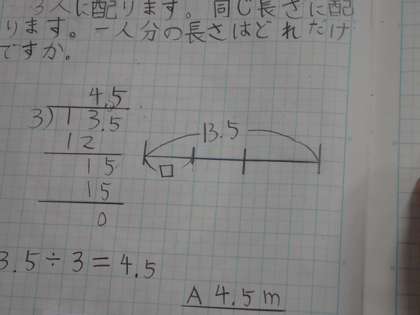 3人に配ります。同じ長さに配
ります。一人分の長さはどれだけ
ですか。
4.5
3)13.5
12
15
15
0
13.5
□
3.5÷3=4.5
A 4.5m